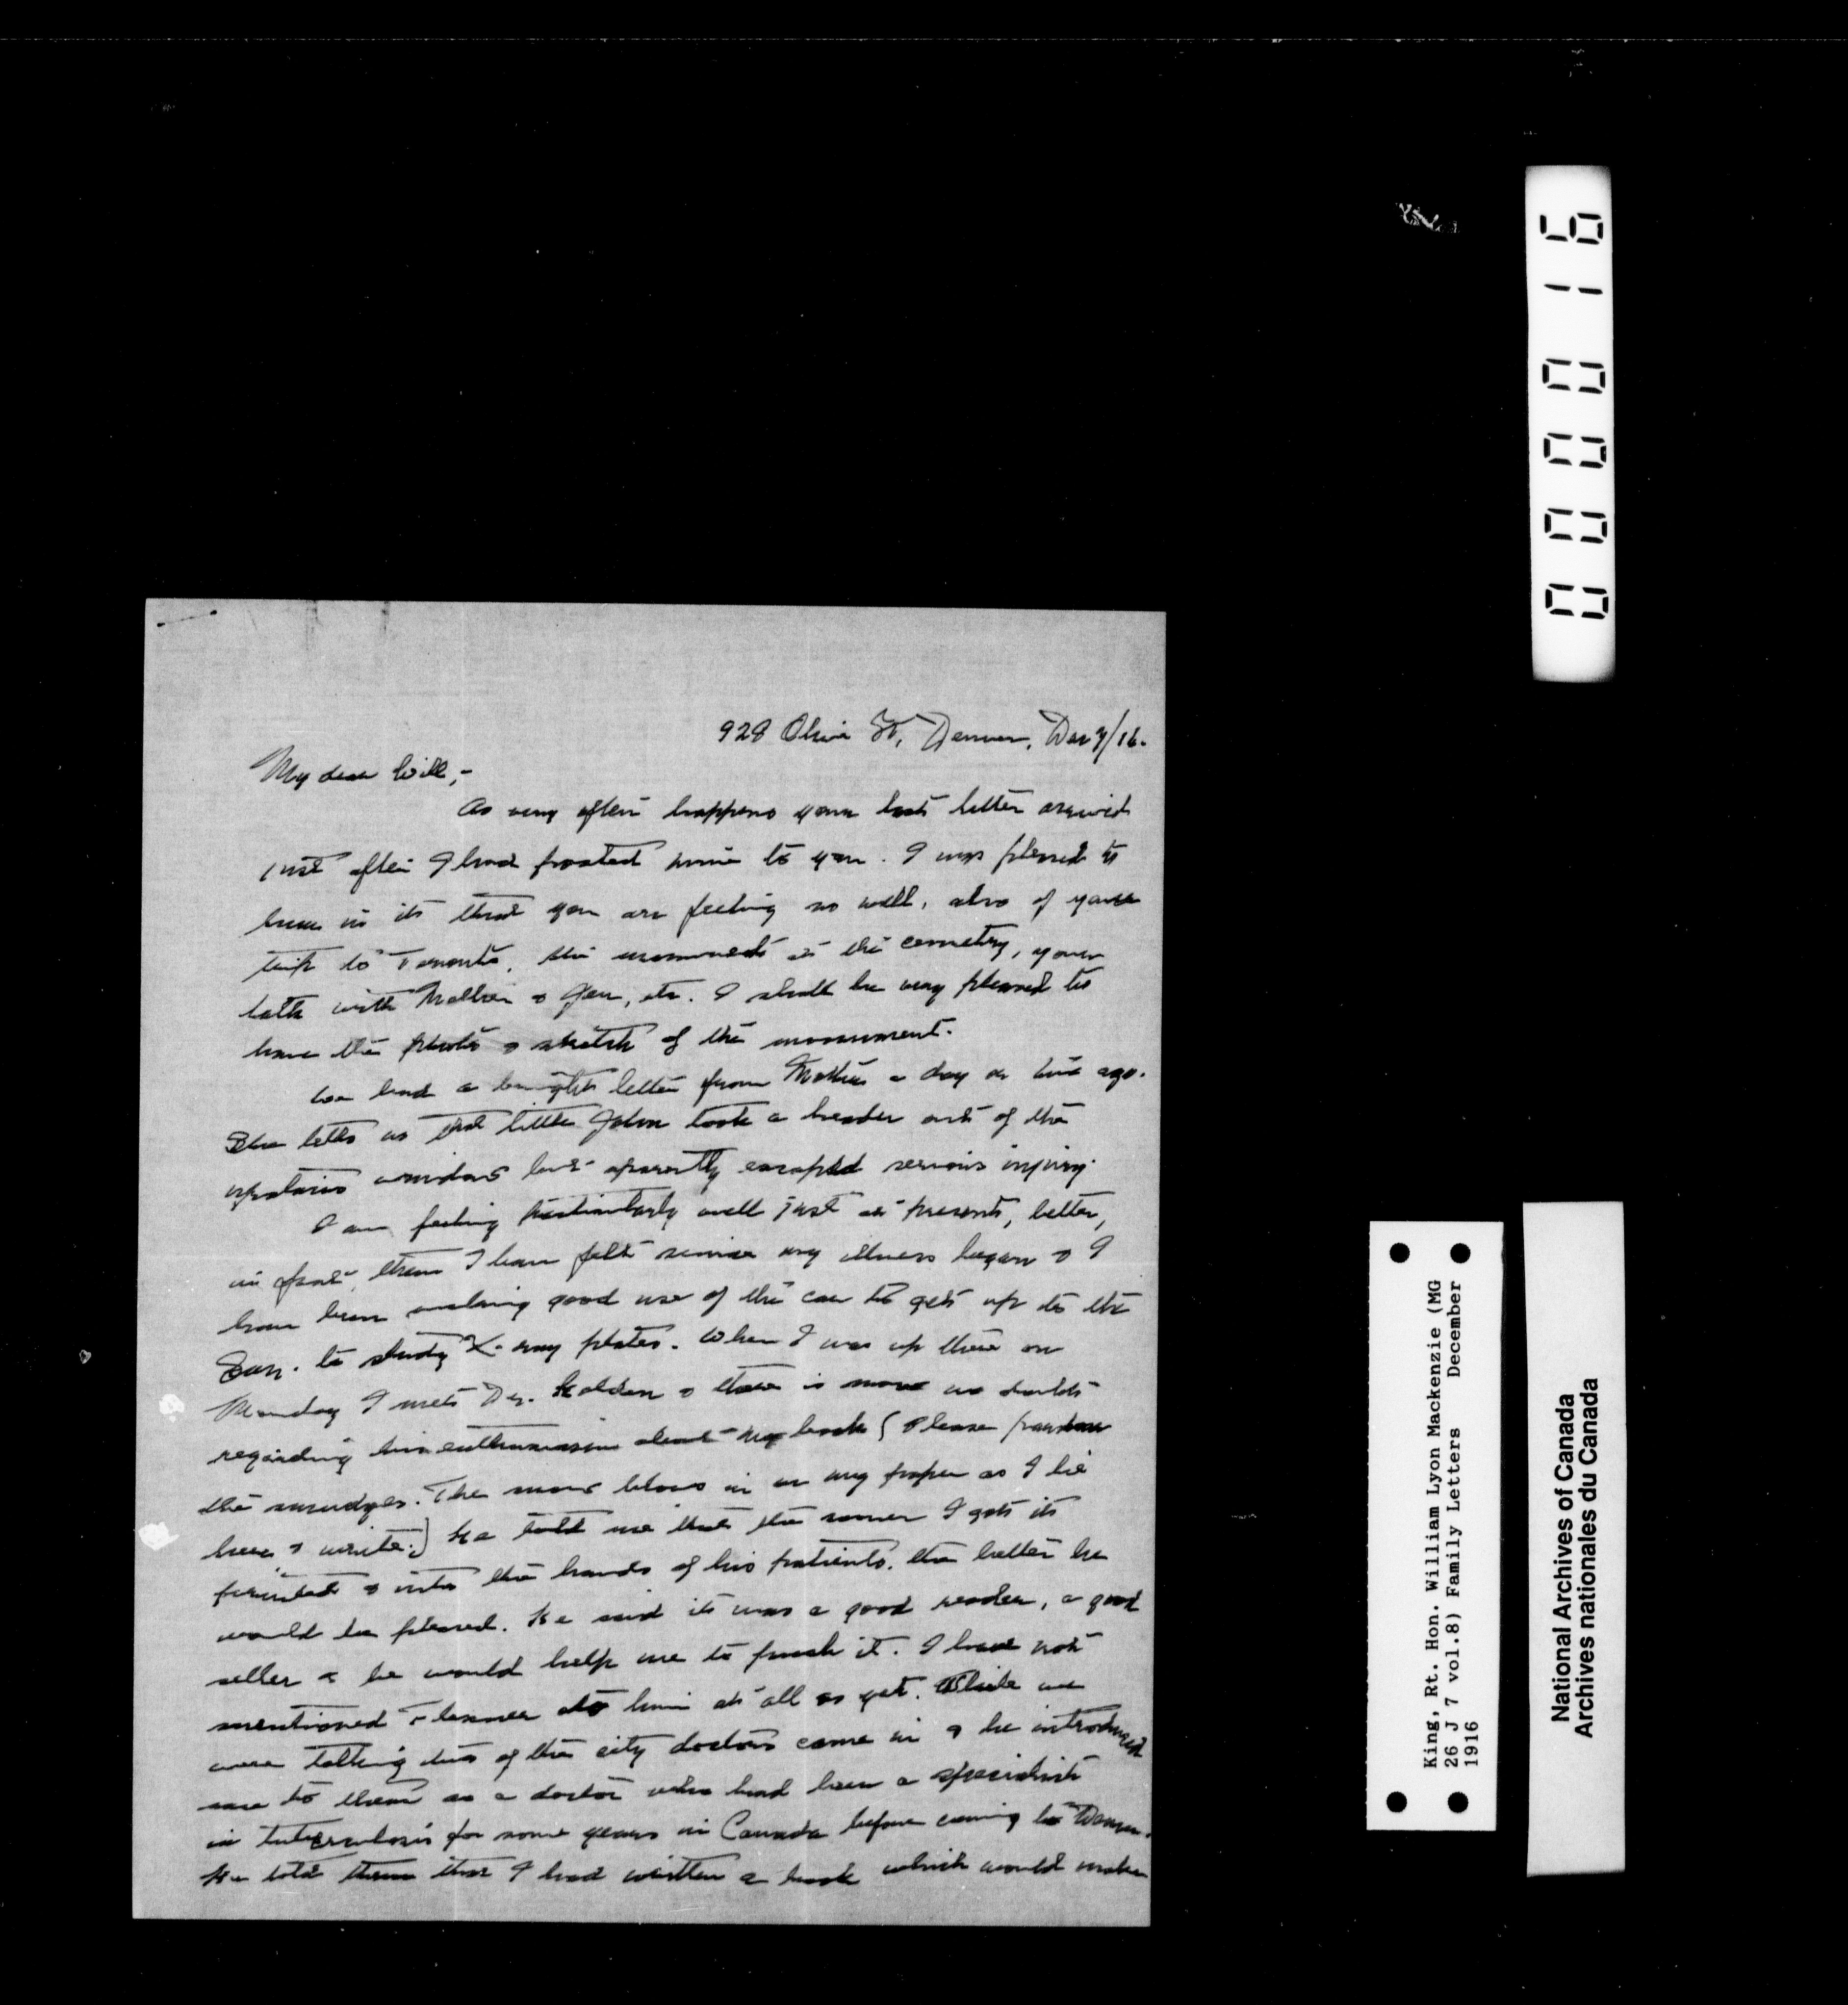 928 Olive St, Denver, Dec 7/16.
My dear Will,-
As very often happens your last letter arrived
just after I had posted mine to you. I was pleased to
know in it that you are feeling so well, also of your
trip to Toronto, the monument at the cemetry, your
talk with Mother & Jen, etc. I shall be very pleased to
have the photo & sketch of the monument.
We had a bright letter from Mother a day or two ago.
She tells us that little John took a header out of the
upstairs window but aparently escaped serious injury.
I am feeling particularly well just at present, better,
in fact, than I have felt since my illness began & I
have been making good use of the car to get up to the
San. to study X-ray plates. When I was up there on
Monday I met Dr. Holden & there is now no doubt
regarding his enthusiasm about my book (Please pardon
the smudges. The snow blows in on my paper as I lie
here & write.) He told me that the sooner I get it
printed & into the hands of his patients, the better he
would be pleased. He said it was a good reader, a good
seller & he would help me to push it. I have not
mentioned Flexner to him at all as yet. While we
were talking two of the city doctors came in & he introduced
me to them as a doctor who had been a specialist
in tuberculosis for some years in Canada before coming to Denver.
He told them that I had written a book which would make
000016
King, Rt. Hon. William Lyon Mackenzie (MG
26 J 7 vol.8) Family Letters December
1916
National Archives of Canada
Archives nationales du Canada